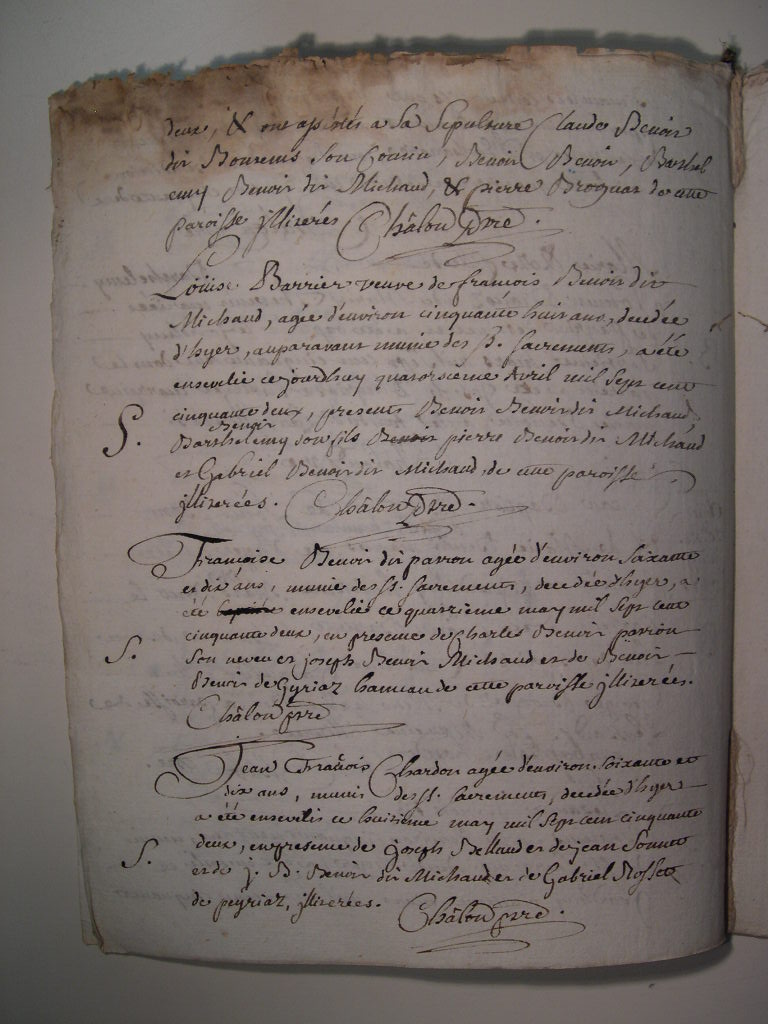 deux, & ont assistés a Sa Sepulture Claude Benoir
dit Son Cousin, Benoir Benoir, Barthel
emy Benoir dit Michaud, & pierre Broquar de cette
paroisse jllitérés Châlon ptre.
Loüise Barrier veuve de françois Benoir dit
Michaud, agée d'environ cinquante huit ans, decedée
d'hyer, auparavant munie des S. Sacrements, a été
ensevelie ce jourdhuy quatorsième Avril mil Sept cent
cinquante deux, presents Benoir Benoir dit Michaud,
Benoir
S. Barthelemy son fils Benoir pierre Benoir dit Michaud
et Gabriel Benoir dit Michaud de cette paroisse
jllitérées. Châlon ptre.
Françoise Benoir dit parron agée d'environ Soixante
et dix ans, munie des SS. Sacrements, decedée d'hyer, a
été ensevelie ce quatrieme may mil Sept cent
cinquante deux, en presence de Charles Benoir parron
S. Son neveu et joseph Benoir Michaud et de Benoir
Benoir de Gyriaz hameau de cette paroisse jllitérées.
Châlon ptre
Jean François Chardon agée d'environ Soixante et
dix ans, munis des SS. Sacrements, decedée d'hyer
a été ensevelis ce huitieme may mil Sept cent cinquante
S. deux, en presence de joseph Bellaud et de jean
et de j. B. Benoir dit Michaud et de Gabriel Rosset
de peyriaz, jllitérées. Châlon ptre.